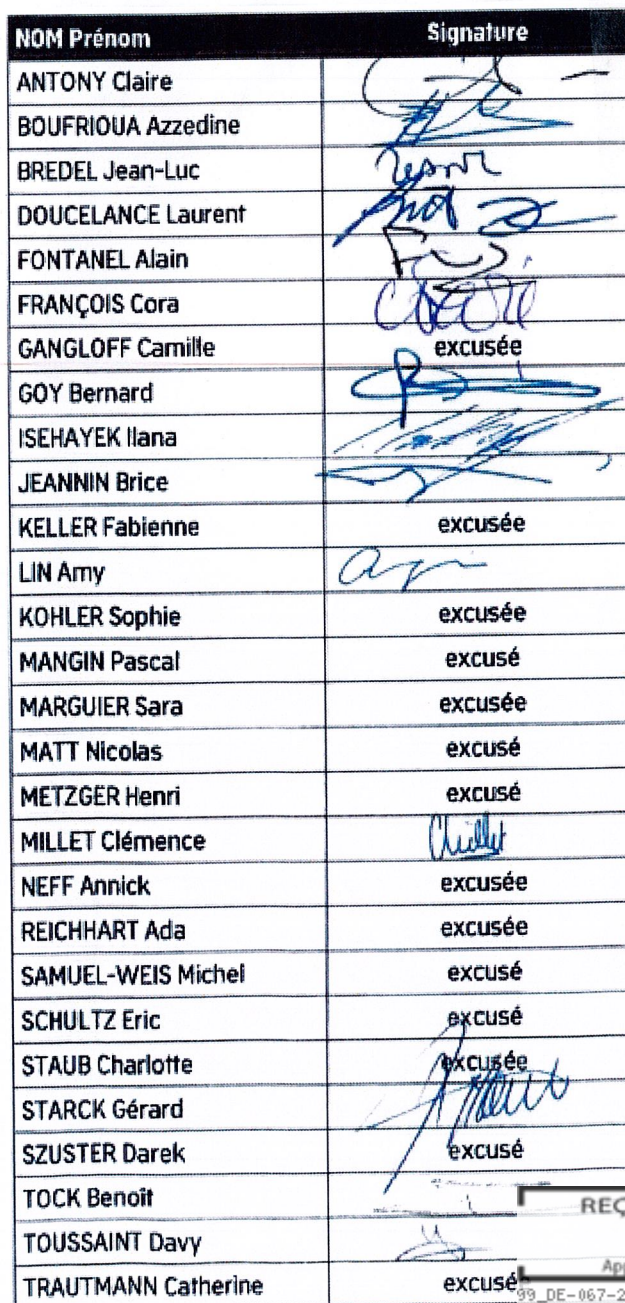 NOM Prénom Signature
ANTONY Claire
BOUFRIOUA Azzedine
BREDEL Jean-Luc
DOUCELANCE Laurent
FONTANEL Alain
FRANÇOIS Cora
GANGLOFF Camille excusée
GOY Bernard
ISEHAYEK Ilana
JEANNIN Brice
KELLER Fabienne excusée
LIN Amy
KOHLER Sophie excusée
MANGIN Pascal excusé
MARGUIER Sara excusée
MATT Nicolas excusé
METZGER Henri excusé
MILLET Clémence CMillet
NEFF Annick excusée
REICHHART Ada excusée
SAMUEL-WEIS Michel excusé
SCHULTZ Eric excusé
STAUB Charlotte excusée
STARCK Gérard
SZUSTER Darek excusé
TOCK Benoît
REÇ
TOUSSAINT Davy
App
TRAUTMANN Catherine excusée
99_DE-067-2